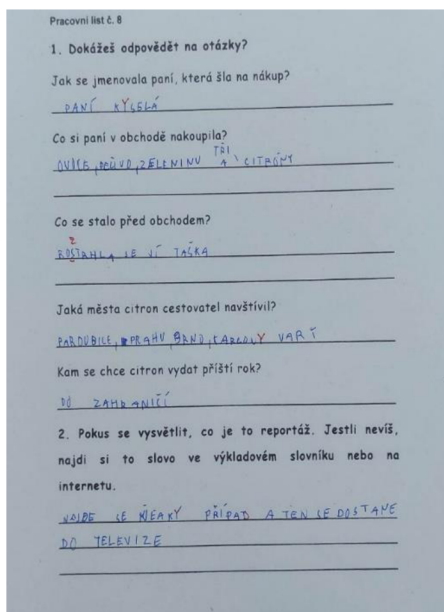 Pracovní list č. 8
1. Dokážeš odpovědět na otázky?
Jak se jmenovala paní, která šla na nákup?
PANÍ KYSELÁ
Co si paní v obchodě nakoupila?
TŘI
OVOCE, PEČIVO, ZELENINU A CITRÓNY
Co se stalo před obchodem?
Z
ROSTRHLA SE JÍ TAŠKA
Jaká města citron cestovatel navštívil?
PARDUBICE, PRAHU, BRNO, KARLOVY VARY
Kam se chce citron vydat příští rok?
DO ZAHRANIČÍ
2. Pokus se vysvětlit, co je to reportáž. Jestli nevíš,
najdi si to slovo ve výkladovém slovníku nebo na
internetu.
SE PŘÍPAD A TEN SE DOSTANE
DO TELEVIZE